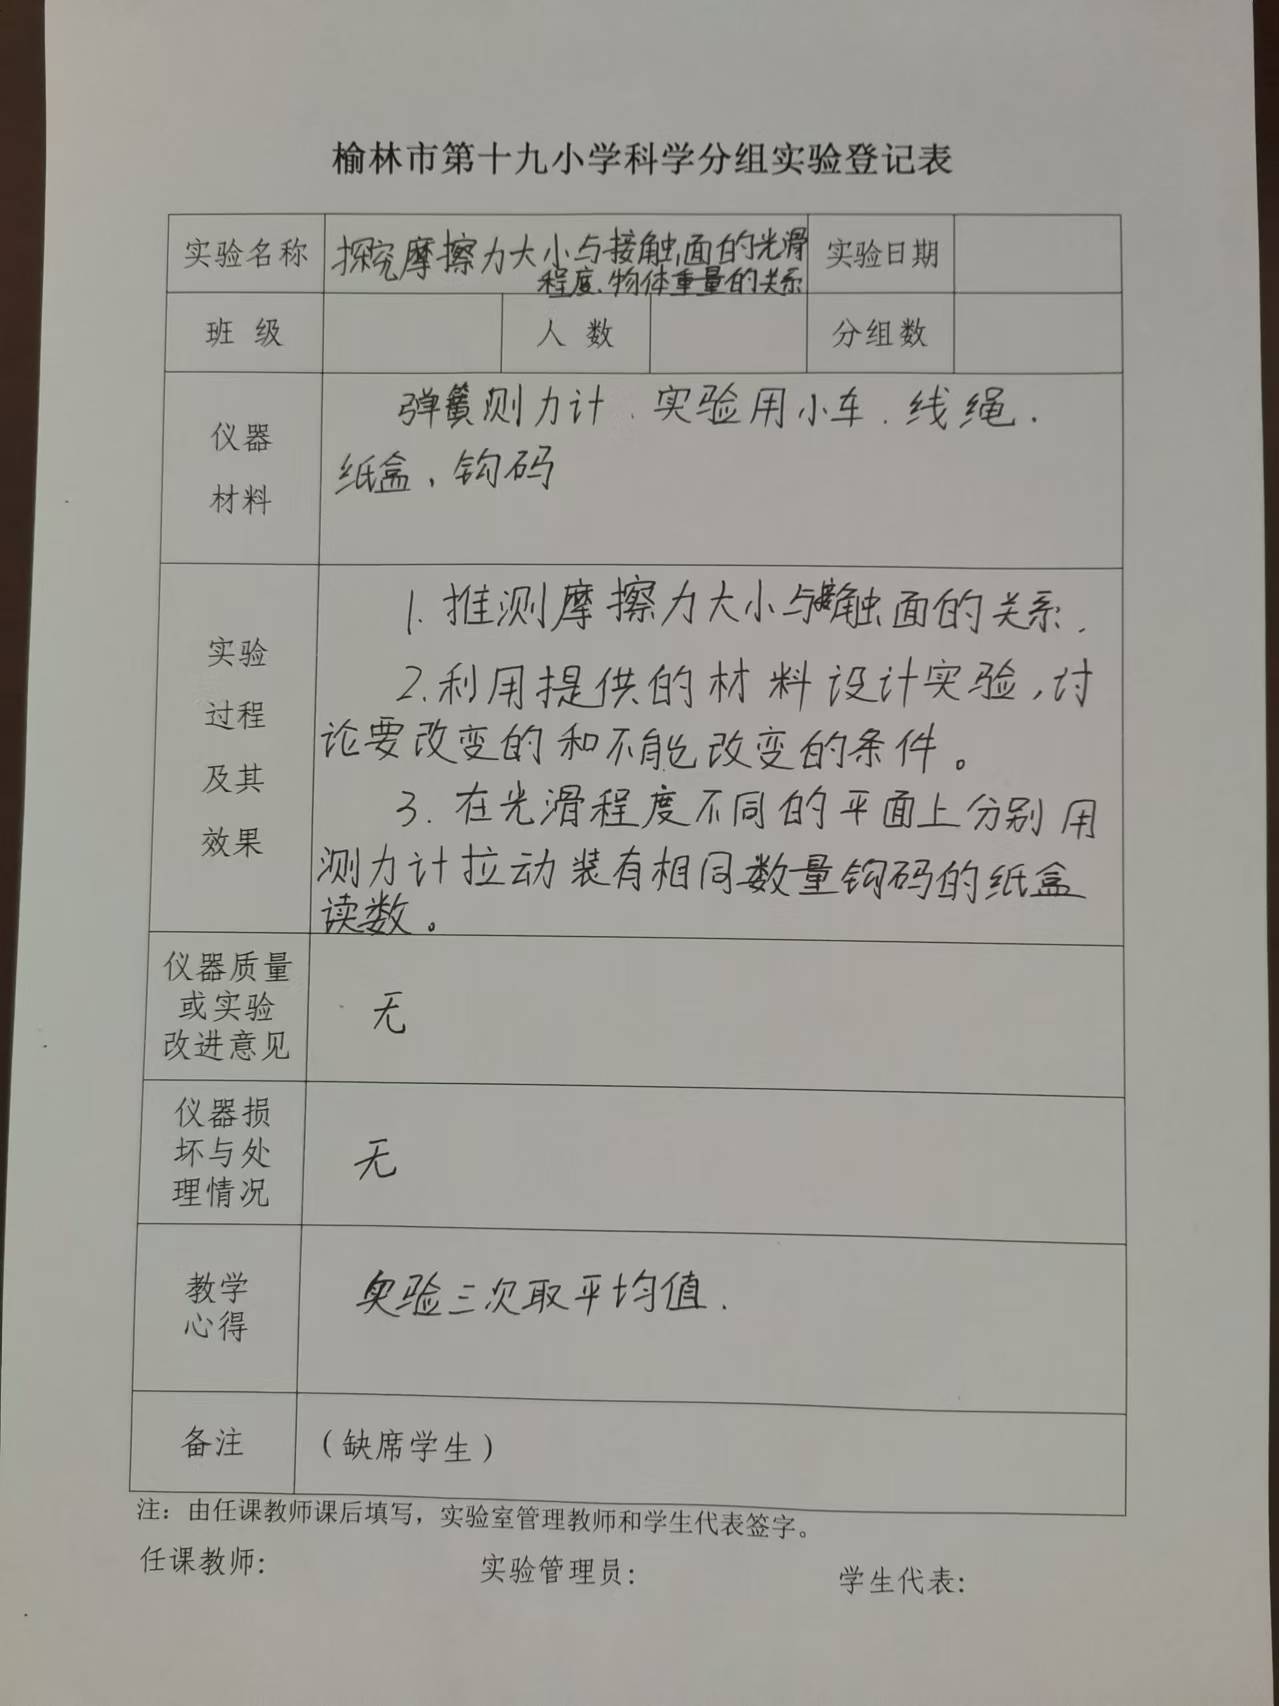 榆林市第十九小学科学分组实验登记表
实验名称 探究摩擦力大小与接触面的光滑 实验日期
程度、物体重量的关系
班 级 人 数 分组数
弹簧测力计、实验用小车、线绳、
仪器
纸盒、钩码
材料
1. 推测摩擦力大小与接触面的关系.
实验
2. 利用提供的材料设计实验,讨
过程
论要改变的和不能改变的条件。
及其
3. 在光滑程度不同的平面上分别用
效果
测力计拉动装有相同数量钩码的纸盒
读数。
仪器质量
或实验 无
改进意见
仪器损
坏与处 无
理情况
教学 实验三次取平均值.
心得
备注 （缺席学生）
注：由任课教师课后填写，实验室管理教师和学生代表签字。
任课教师: 实验管理员: 学生代表: